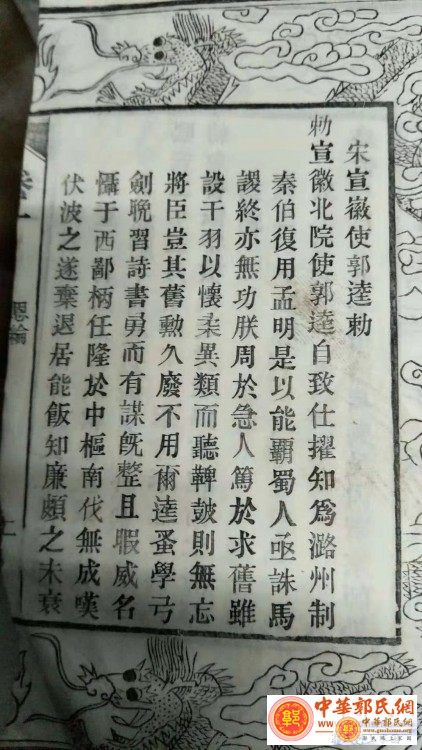 宋宣徽使郭逵勅
勅宣徽北院使郭逵自致仕擢知爲潞州制
秦伯復用孟明是以能霸蜀人亟誅馬
謖終亦無功朕周於急人篤於求舊雖
設干羽以懷柔異類而聽鞞鼓則無忘
將臣豈其舊勳久廢不用爾逵蚤學弓
劍晚習詩書勇而有謀旣整且暇威名
懾于西鄙柄任隆於中樞南伐無成嘆
伏波之遂棄退居能飯知廉頗之未衰
恩綸
中華郭氏網
中華郭氏網
www.guohome.org